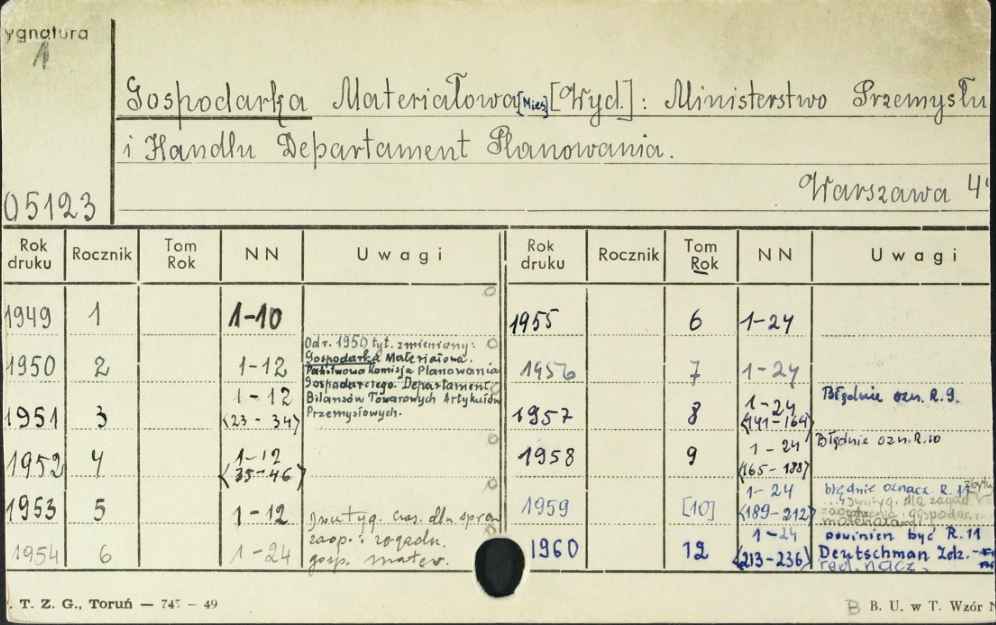 ygnatura
1
Gospodarka Materiałowa [Mies] [Wyd.]: Ministerstwo Przemysłu
i Handlu Departament Planowania.
Warszawa 4°
05123
Rok druku Rocznik Tom Rok NN Uwagi Rok druku Rocznik Tom Rok NN Uwagi
1949 1 1-10 1955 6 1-24
1950 2 1-12 Od r. 1950 tyt. zmieniony: Gospodarka Materiałowa. Państwowa Komisja Planowania Gospodarczego. Departament Bilansów Towarowych Artykułów Przemysłowych. 1956 7 1-24
1951 3 1-12 <23-34> 1957 8 1-24 <141-164> Błędnie ozn. R. 9.
1952 4 1-12 <35-46> 1958 9 1-24 <165-188> Błędnie ozn. R. 10
1953 5 1-12 1959 [10] 1-24 <189-212> błędnie oznacz. R. 11
1954 6 1-24 gosp. mater. 1960 12 1-24 <213-236> powinien być R. 11 Deutschman Zdz. red. nacz.
. T. Z. G., Toruń — 745 - 49
B B. U. w T. Wzór N